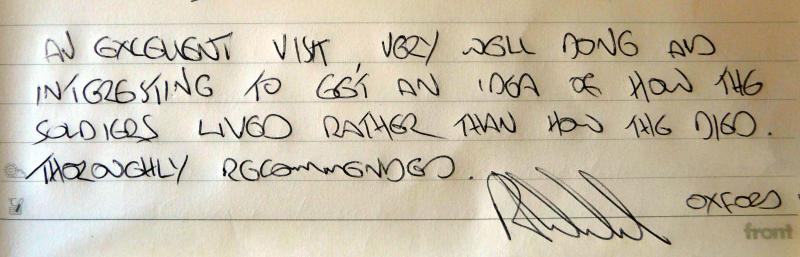 AN EXCELLENT VISIT, VERY WELL DONE AND
INTERESTING TO GET AN IDEA OF HOW THE
SOLDIERS LIVED RATHER THAN HOW THE DIED.
THOROUGHLY RECOMMENDED.
OXFORD
front